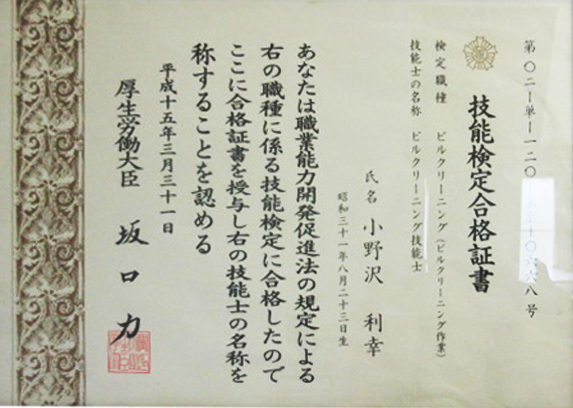 第〇二ー単ー一二〇
〇六六八号
技能検定合格証書
検定職種 ビルクリーニング(ビルクリーニング作業)
技能士の名称 ビルクリーニング技能士
氏名 小野沢 利幸
昭和三十一年八月二十三日生
あなたは職業能力開発促進法の規定による
右の職種に係る技能検定に合格したので
ここに合格証書を授与し右の技能士の名称を
称することを認める
平成十五年三月三十一日
厚生労働大臣 坂口 力